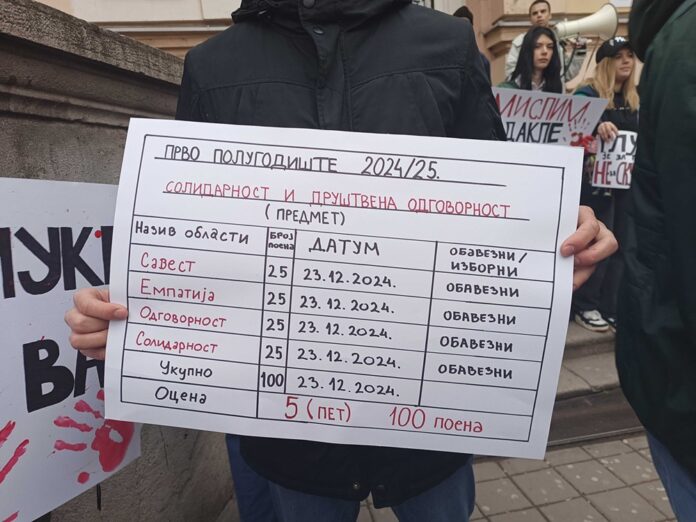 ПРВО ПОЛУГОДИШТЕ 2024/25.
СОЛИДАРНОСТ И ДРУШТВЕНА ОДГОВОРНОСТ
(ПРЕДМЕТ)
Назив области БРОЈ ПОЕНА ДАТУМ ОБАВЕЗНИ/ИЗБОРНИ
Савест 25 23.12.2024. ОБАВЕЗНИ
Емпатија 25 23.12.2024. ОБАВЕЗНИ
Одговорност 25 23.12.2024. ОБАВЕЗНИ
Солидарност 25 23.12.2024. ОБАВЕЗНИ
Укупно 100 23.12.2024.
Оцена 5 (ПЕТ) 100 поена
МИСЛИМ,
ДАКЛЕ